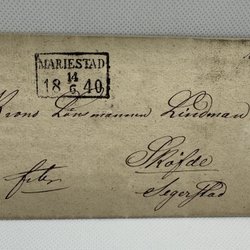 MARIESTAD
14
18 6 40
Krono Länsmannen Lindman
Sköfde
Segerstad